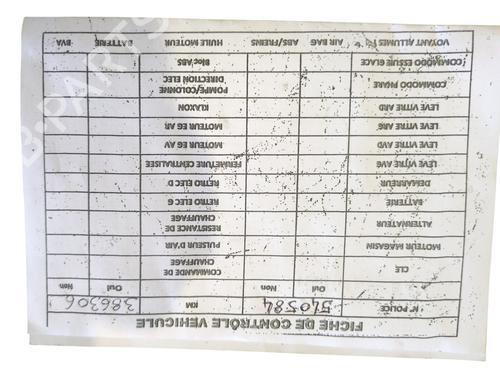 FICHE DE CONTRÔLE VEHICULE
N° POLICE 540584 KM 386306
Oui Non Oui Non
CLE COMMANDE DE CHAUFFAGE
MOTEUR MAGASIN PULSEUR D'AIR
ALTERNATEUR RESISTANCE DE CHAUFFAGE
BATTERIE RETRO ELEC G
DEMARREUR RETRO ELEC D
LEVE VITRE AVG FERMETURE CENTRALISEE
LEVE VITRE AVD MOTEUR EG AV
LEVE VITRE ARG MOTEUR EG AR
LEVE VITRE ARD KLAXON
COMMODO PHARE POMPE/COLONNE DIRECTION ELEC
COMMODO ESSUIE GLACE Bloc ABS
VOYANT ALLUMES AIR BAG ABS/FREINS HUILE MOTEUR BATTERIE BVA
B-PARTS